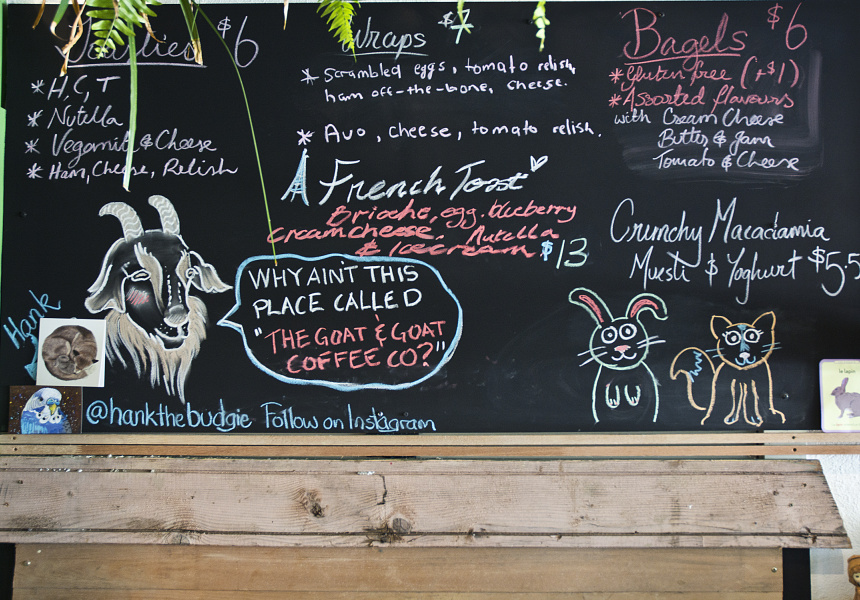 Toasties $6
* H, C, T
* Nutella
* Vegemite & Cheese
* Ham, Cheese, Relish
Wraps $7
* Scrambled eggs, tomato relish,
ham off-the-bone, cheese.
* Avo, cheese, tomato relish.
Bagels $6
* Gluten free (+$1)
* Assorted flavours
with Cream Cheese
Butter & Jam
Tomato & Cheese
French Toast
Brioche, egg, blueberry
creamcheese, Nutella
& Icecream $13
Crunchy Macadamia
Muesli & Yoghurt $5.5
WHY AIN'T THIS
PLACE CALLED
"THE GOAT & GOAT
COFFEE CO?"
Hank
@hankthebudgie Follow on Instagram
le lapin